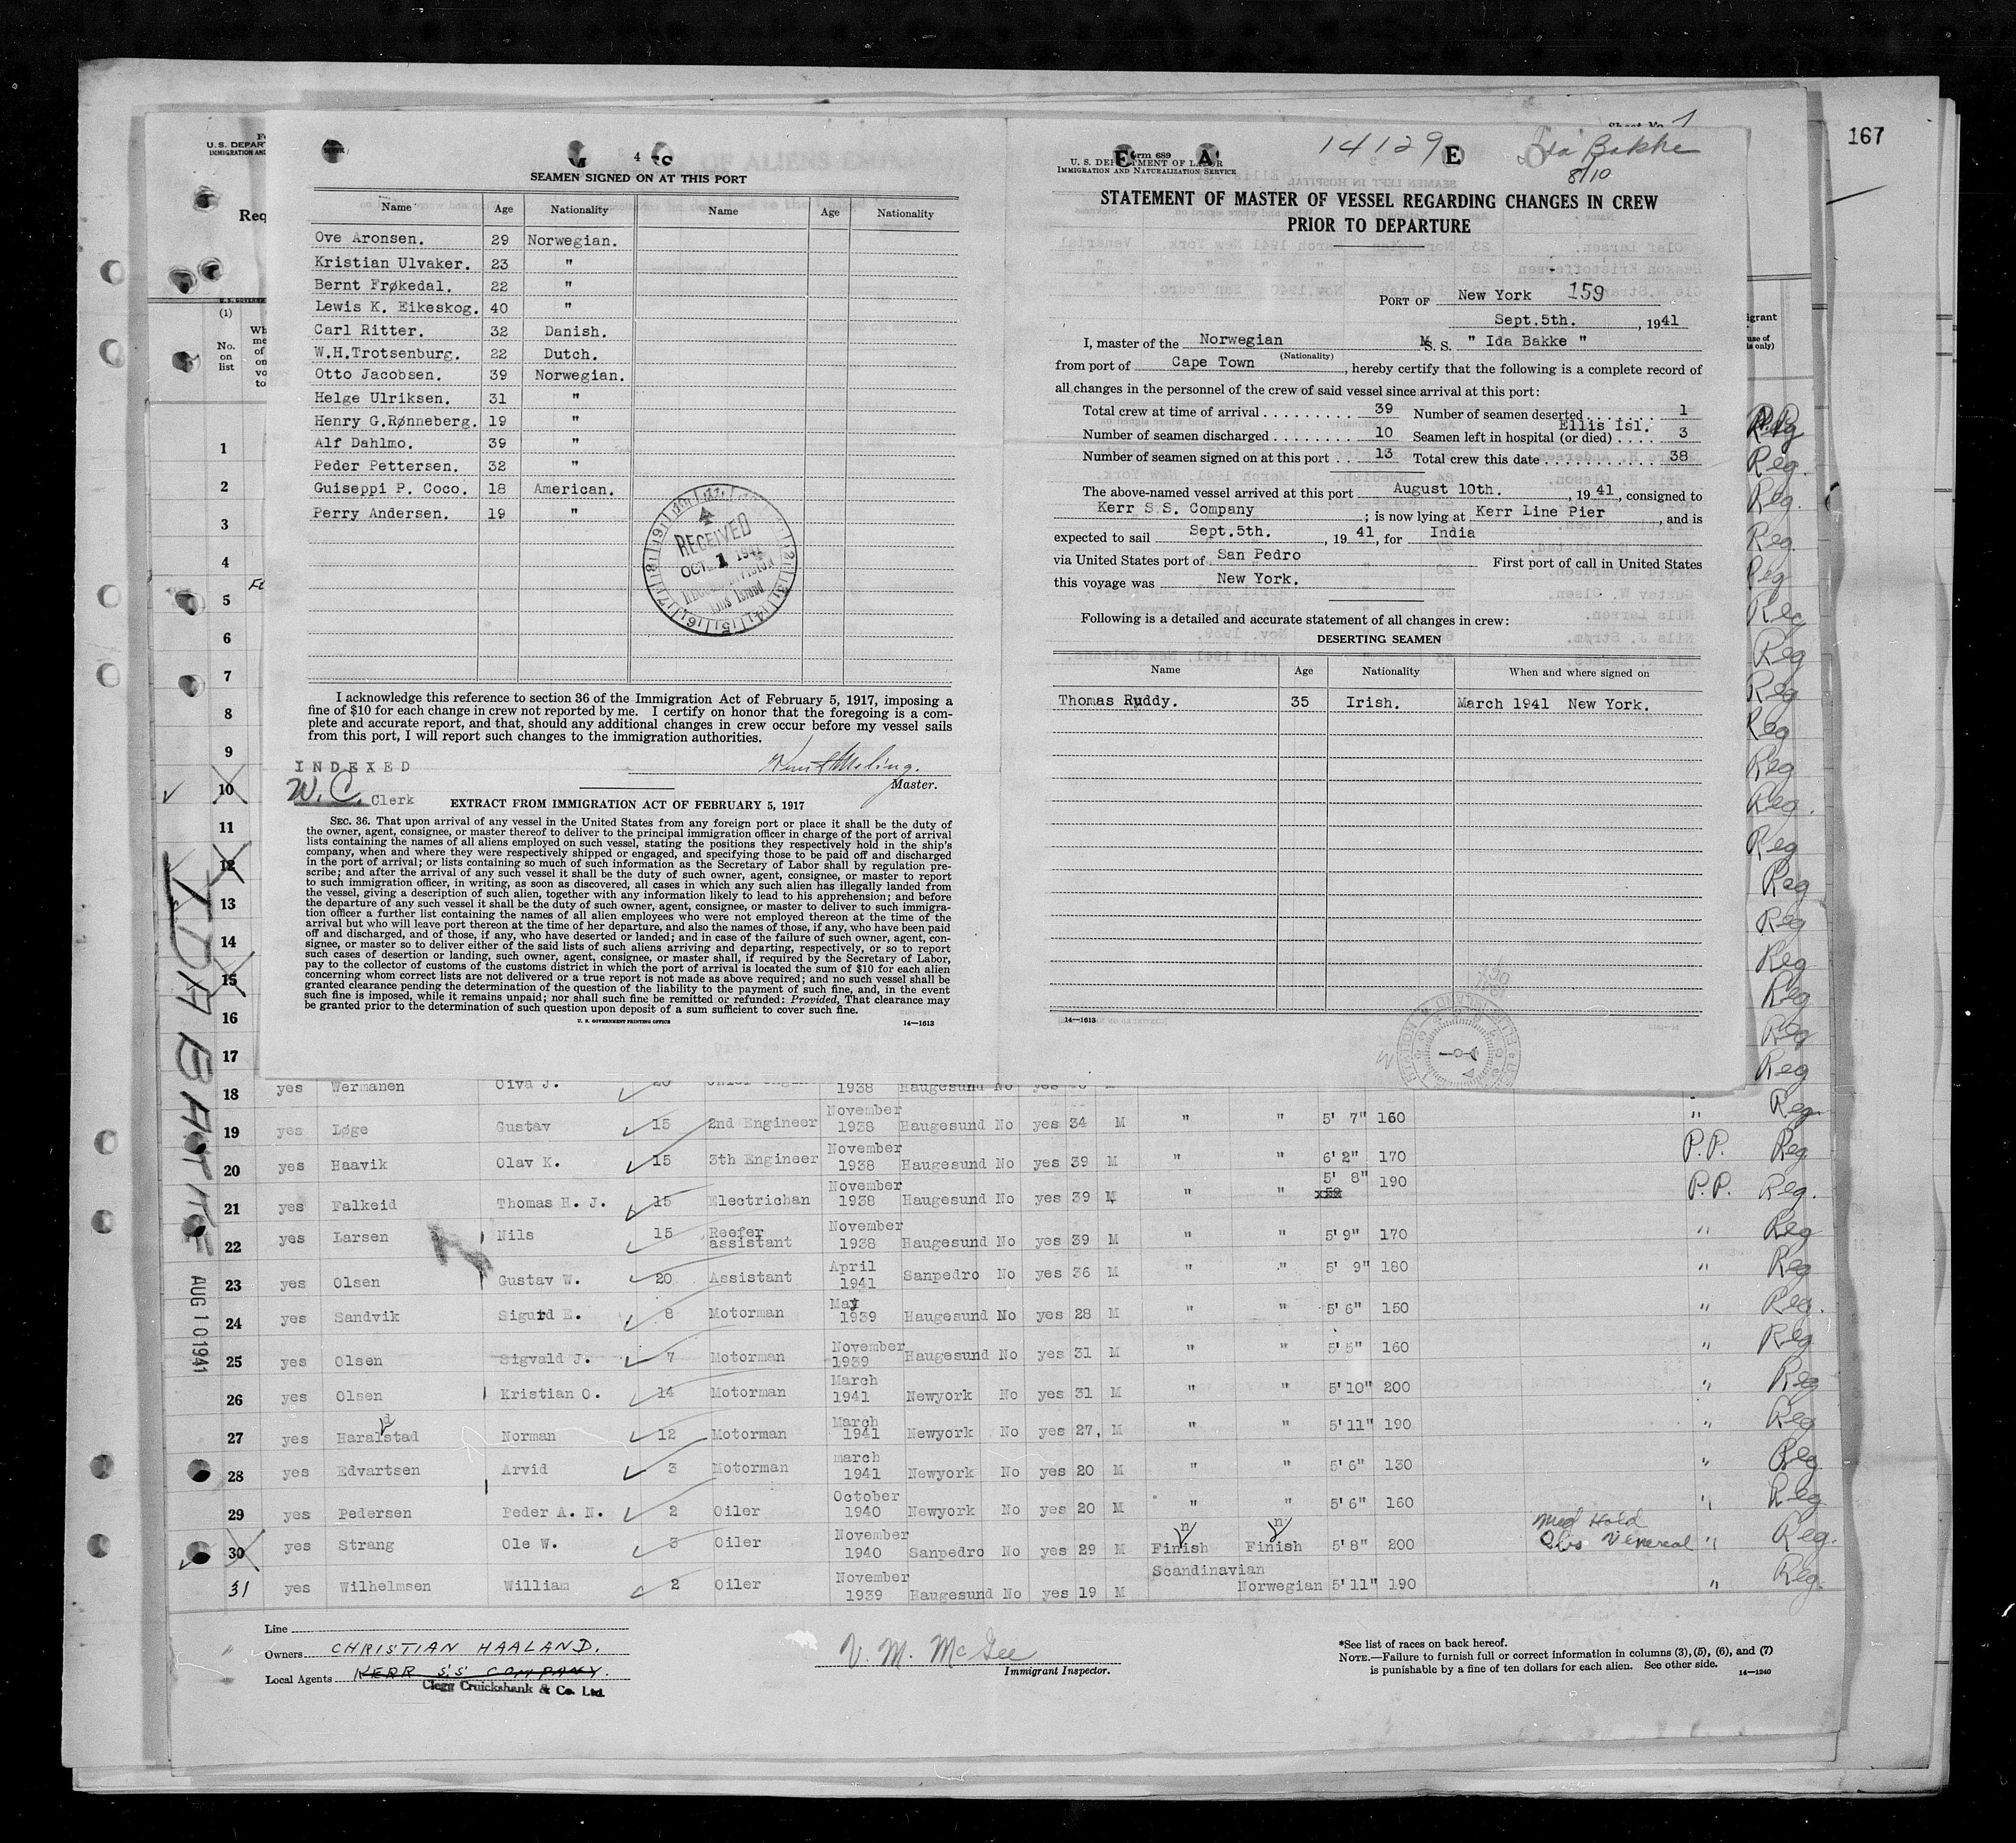 167
4
SEAMEN SIGNED ON AT THIS PORT
Name Age Nationality Name Age Nationality
Ove Aronsen. 29 Norwegian.
Kristian Ulvaker. 23 "
Bernt Frøkedal. 22 "
Lewis K. Eikeskog. 40 "
Carl Ritter. 32 Danish.
W.H.Trotsenburg. 22 Dutch.
Otto Jacobsen. 39 Norwegian.
Helge Ulriksen. 31 "
Henry G.Rønneberg. 19 "
Alf Dahlmo. 39 "
Peder Pettersen. 32 "
Guiseppi P. Coco. 18 American.
Perry Andersen. 19 "
RECEIVED
OCT 1 1941
I acknowledge this reference to section 36 of the Immigration Act of February 5, 1917, imposing a
fine of $10 for each change in crew not reported by me. I certify on honor that the foregoing is a com-
plete and accurate report, and that, should any additional changes in crew occur before my vessel sails
from this port, I will report such changes to the immigration authorities.
INDEXED
W. C. Clerk
Master.
EXTRACT FROM IMMIGRATION ACT OF FEBRUARY 5, 1917
SEC. 36. That upon arrival of any vessel in the United States from any foreign port or place it shall be the duty of
the owner, agent, consignee, or master thereof to deliver to the principal immigration officer in charge of the port of arrival
lists containing the names of all aliens employed on such vessel, stating the positions they respectively hold in the ship's
company, when and where they were respectively shipped or engaged, and specifying those to be paid off and discharged
in the port of arrival; or lists containing so much of such information as the Secretary of Labor shall by regulation pre-
scribe; and after the arrival of any such vessel it shall be the duty of such owner, agent, consignee, or master to report
to such immigration officer, in writing, as soon as discovered, all cases in which any such alien has illegally landed from
the vessel, giving a description of such alien, together with any information likely to lead to his apprehension; and before
the departure of any such vessel it shall be the duty of such owner, agent, consignee, or master to deliver to such immigra-
tion officer a further list containing the names of all alien employees who were not employed thereon at the time of the
arrival but who will leave port thereon at the time of her departure, and also the names of those, if any, who have been paid
off and discharged, and of those, if any, who have deserted or landed; and in case of the failure of such owner, agent, con-
signee, or master so to deliver either of the said lists of such aliens arriving and departing, respectively, or so to report
such cases of desertion or landing, such owner, agent, consignee, or master shall, if required by the Secretary of Labor,
pay to the collector of customs of the customs district in which the port of arrival is located the sum of $10 for each alien
concerning whom correct lists are not delivered or a true report is not made as above required; and no such vessel shall be
granted clearance pending the determination of the question of the liability to the payment of such fine, and, in the event
such fine is imposed, while it remains unpaid; nor shall such fine be remitted or refunded: Provided, That clearance may
be granted prior to the determination of such question upon deposit of a sum sufficient to cover such fine.
U. S. GOVERNMENT PRINTING OFFICE 14—1613
14129 Ida Bakke
8/10
Form 689
U. S. DEPARTMENT OF LABOR
IMMIGRATION AND NATURALIZATION SERVICE
STATEMENT OF MASTER OF VESSEL REGARDING CHANGES IN CREW
PRIOR TO DEPARTURE
PORT OF New York 159
Sept.5th. , 1941
I, master of the Norwegian M. S. " Ida Bakke "
(Nationality)
from port of Cape Town , hereby certify that the following is a complete record of
all changes in the personnel of the crew of said vessel since arrival at this port:
Total crew at time of arrival 39 Number of seamen deserted 1
Ellis Isl.
Number of seamen discharged 10 Seamen left in hospital (or died) 3
Number of seamen signed on at this port 13 Total crew this date 38
The above-named vessel arrived at this port August 10th. , 1941, consigned to
Kerr S.S. Company ; is now lying at Kerr Line Pier , and is
expected to sail Sept.5th. , 1941, for India
via United States port of San Pedro First port of call in United States
this voyage was New York.
Following is a detailed and accurate statement of all changes in crew:
DESERTING SEAMEN
Name Age Nationality When and where signed on
Thomas Ruddy. 35 Irish. March 1941 New York.
14—1613
(1)
No. on list
1
2
3
4
5
6
7
8
9
10
11
12
13
14
15
16
17
IDA BAKKE
AUG 10 1941
18 yes Wermanen Oiva J. 1938 Haugesund No yes
19 yes Løge Gustav 15 2nd Engineer November 1938 Haugesund No yes 34 M " " 5' 7" 160 " Reg
20 yes Haavik Olav K. 15 3th Engineer November 1938 Haugesund No yes 39 M " " 6' 2" 170 P.P. Reg
21 yes Falkeid Thomas H. J. 15 Electrichan November 1938 Haugesund No yes 39 M " " 5' 8" 190 P.P. Reg.
22 yes Larsen Nils 15 Reefer assistant November 1938 Haugesund No yes 39 M " " 5'9" 170 " Reg
23 yes Olsen Gustav W. 20 Assistant April 1941 Sanpedro No yes 36 M " " 5' 9" 180 " Reg
24 yes Sandvik Sigurd E. 8 Motorman May 1939 Haugesund No yes 28 M " " 5'6" 150 " Reg.
25 yes Olsen Sigvald J. 7 Motorman November 1939 Haugesund No yes 31 M " " 5'5" 160 " Reg
26 yes Olsen Kristian O. 14 Motorman March 1941 Newyork No yes 31 M " " 5'10" 200 " Reg
27 yes Haraldstad Norman 12 Motorman March 1941 Newyork No yes 27, M " " 5'11" 190 " Reg
28 yes Edvartsen Arvid 3 Motorman march 1941 Newyork No yes 20 M " " 5'6" 130 " Reg
29 yes Pedersen Peder A. N. 2 Oiler October 1940 Newyork No yes 20 M " " 5'6" 160 " Reg
30 yes Strang Ole W. 5 Oiler November 1940 Sanpedro No yes 29 M Finnish Finnish 5'8" 200 Med Hold Obs Venereal " Reg.
31 yes Wilhelmsen William 2 Oiler November 1939 Haugesund No yes 19 M Scandinavian Norwegian 5'11" 190 " Reg.
Line
Owners CHRISTIAN HAALAND.
Local Agents KERR S.S. COMPANY.
Clegg Cruickshank & Co. Ltd.
V. M. McGee
Immigrant Inspector.
*See list of races on back hereof.
NOTE.—Failure to furnish full or correct information in columns (3), (5), (6), and (7)
is punishable by a fine of ten dollars for each alien. See other side. 14—1240